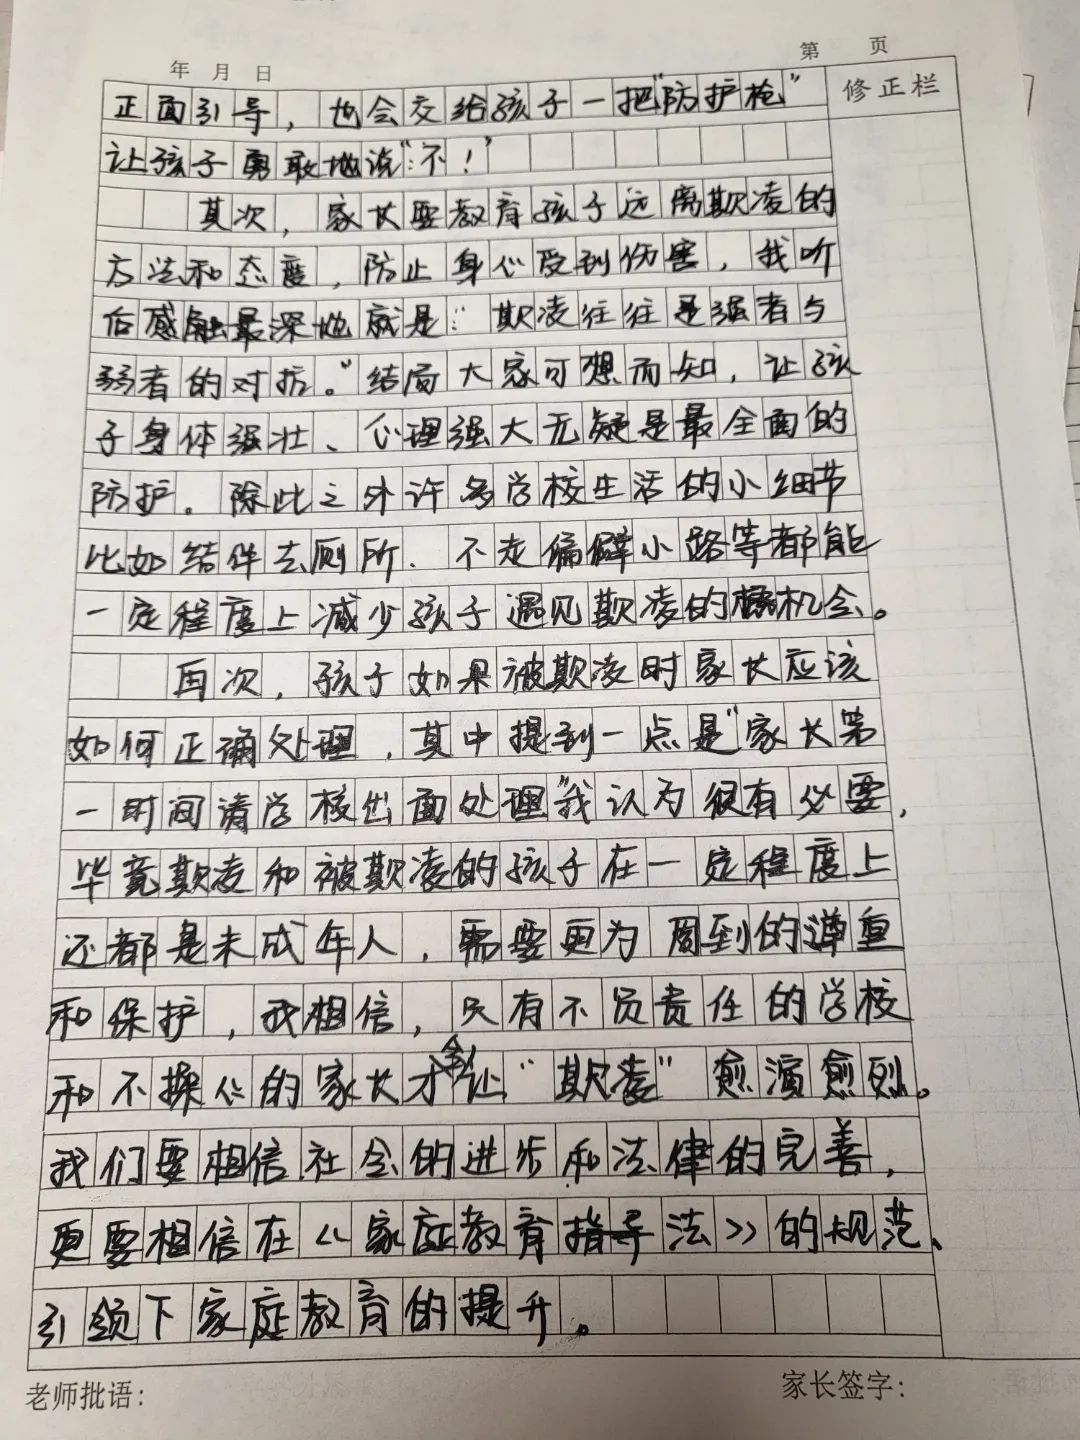 年 月 日
第 页
修正栏
正面引导，也会交给孩子一把"防护枪"
让孩子勇敢地说："不！"
其次，家长要教育孩子远离欺凌的
方法和态度，防止身心受到伤害，我听
后感触最深地就是："欺凌往往是强者与
弱者的对抗。"结局大家可想而知，让孩
子身体强壮、心理强大无疑是最全面的
防护。除此之外许多学校生活的小细节
比如结伴去厕所、不走偏僻小路等都能
一定程度上减少孩子遇见欺凌的机会。
再次，孩子如果被欺凌时家长应该
如何正确处理，其中提到一点是"家长第
一时间请学校出面处理"我认为很有必要，
毕竟欺凌和被欺凌的孩子在一定程度上
还都是未成年人，需要更为周到的遵重
和保护，我相信，只有不负责任的学校
和不操心的家长才会让"欺凌"愈演愈烈。
我们要相信社会的进步和法律的完善，
更要相信在《家庭教育指导法》的规范、
引领下家庭教育的提升。
老师批语：
家长签字：